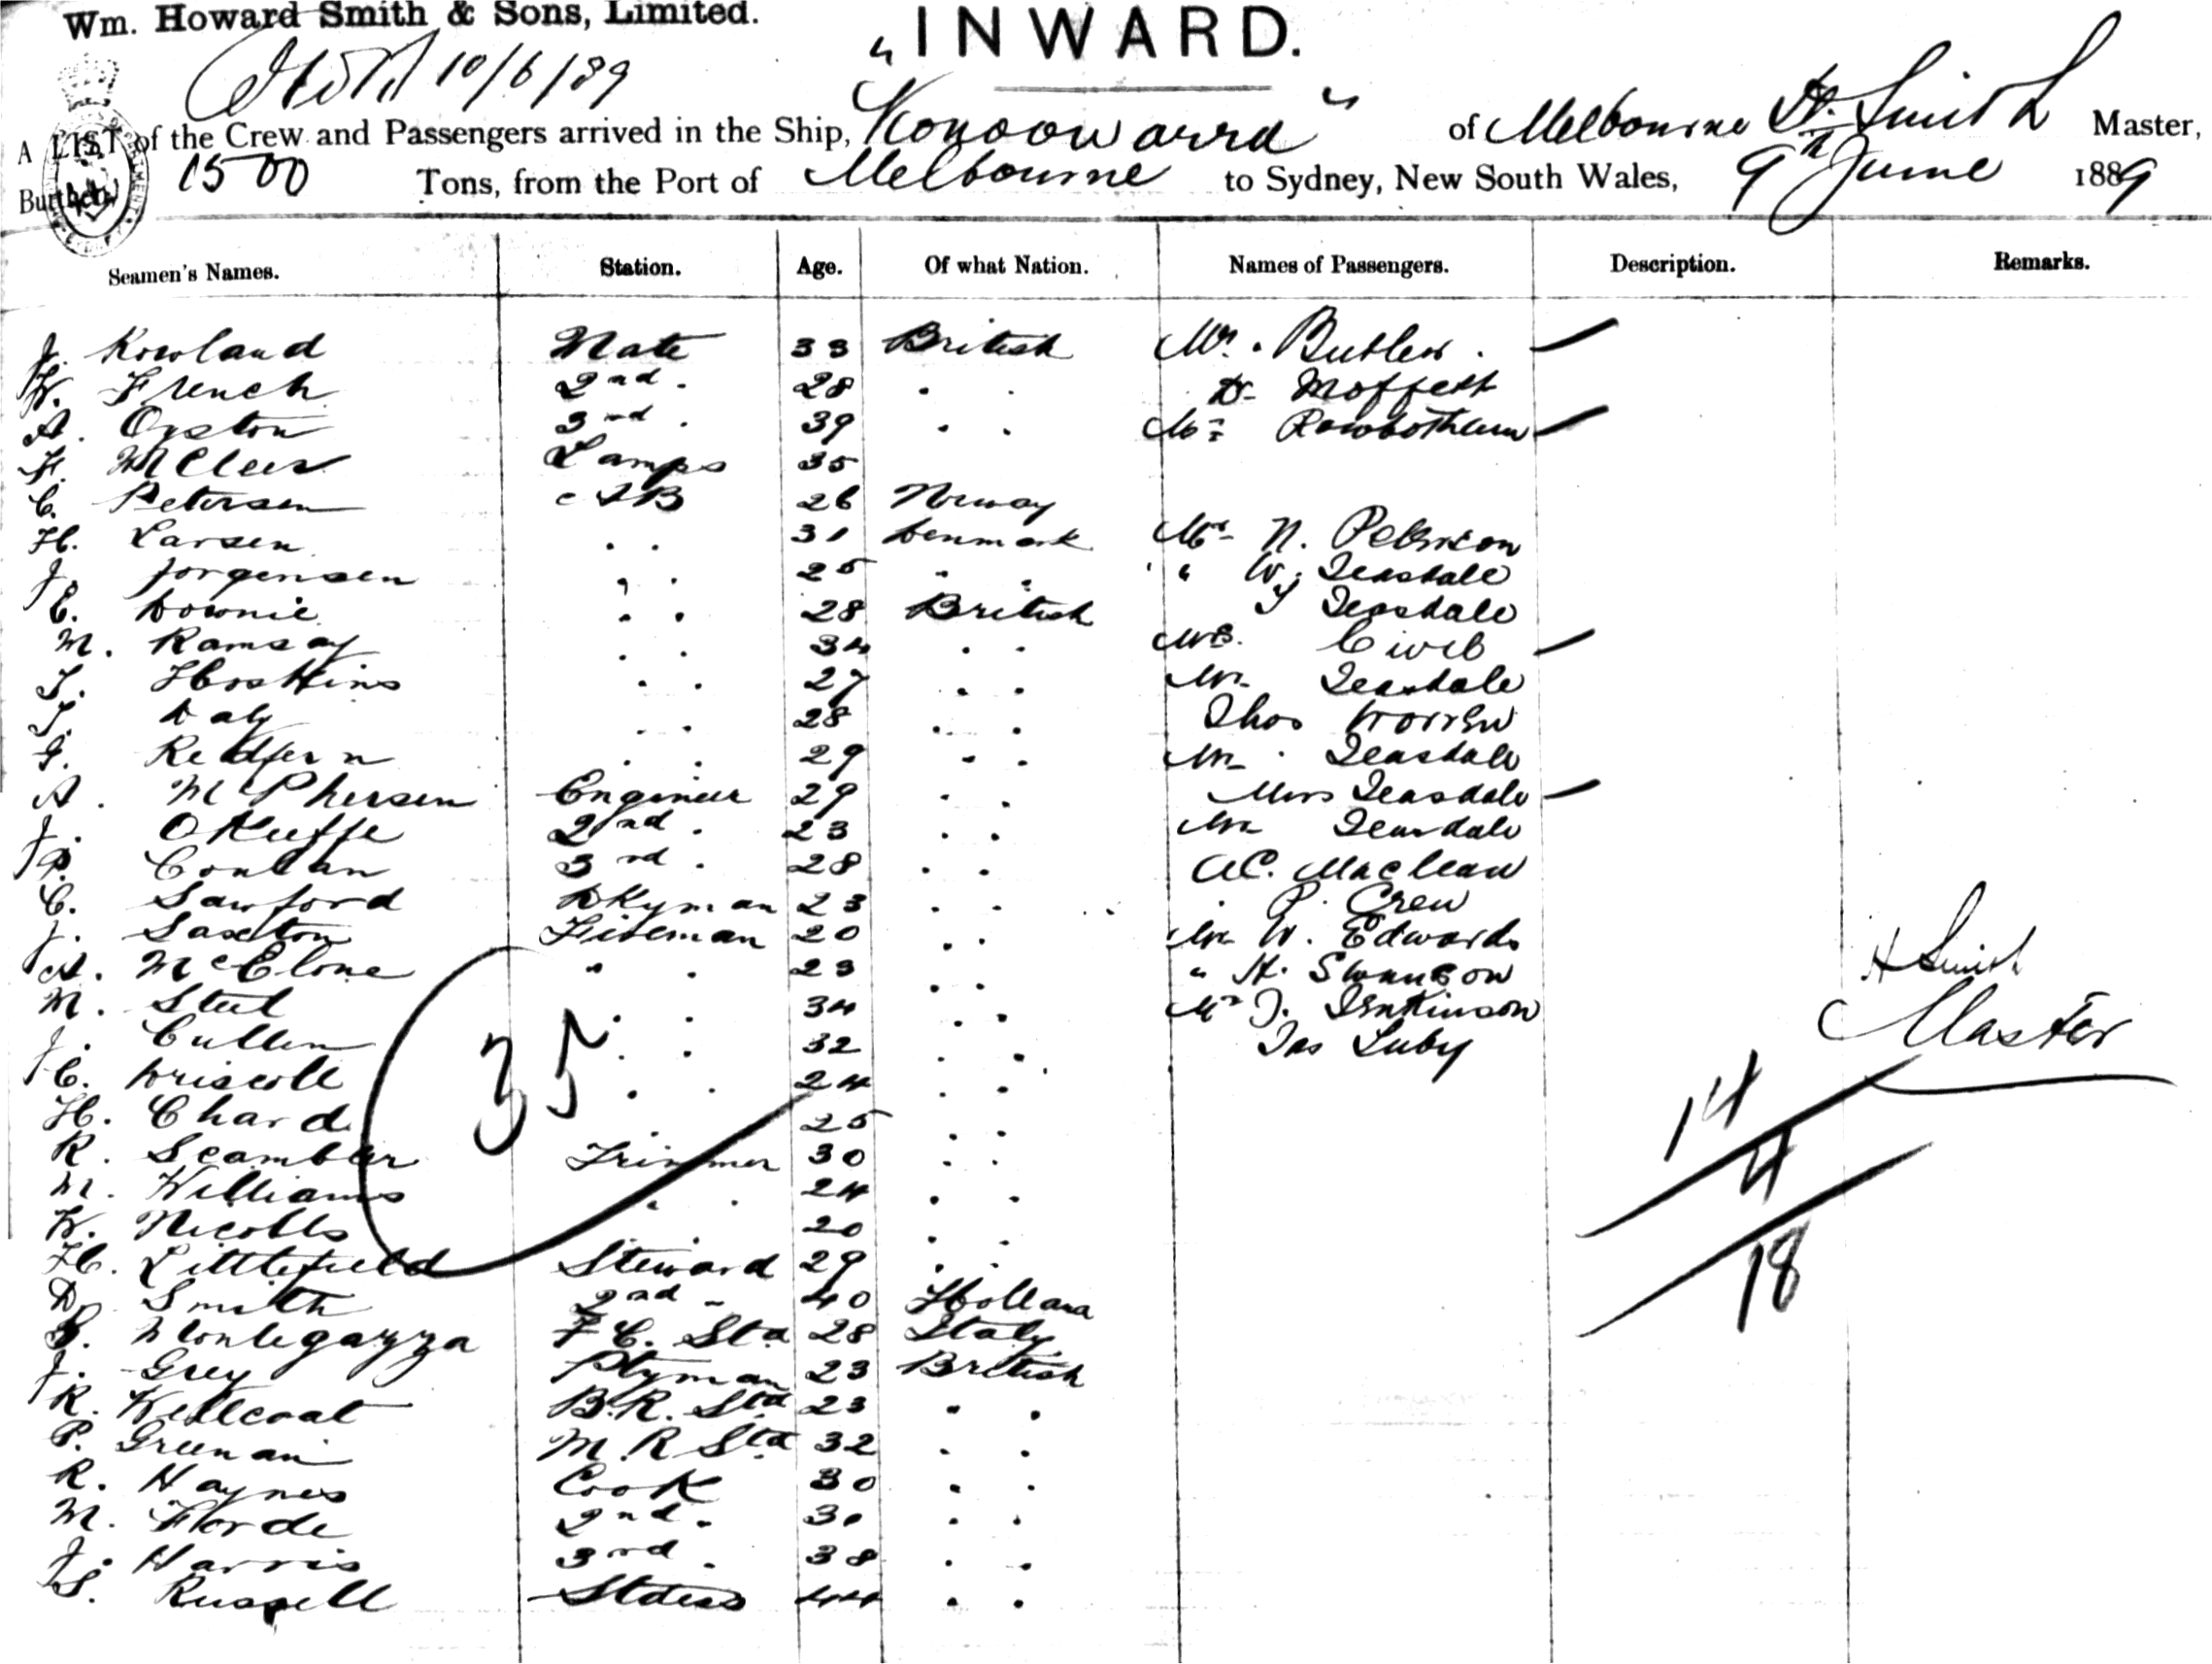 Wm. Howard Smith & Sons, Limited.
"INWARD.
10/6/89
A LIST of the Crew and Passengers arrived in the Ship, "Konoowarra" of Melbourne H. Smith Master,
Burthen 1500 Tons, from the Port of Melbourne to Sydney, New South Wales, 9th June 1889
Seamen's Names. Station. Age. Of what Nation. Names of Passengers. Description. Remarks.
J. Rowland Mate 33 British Mr. Butler.
W. French 2nd . 28 . . Dr Moffett
A. Oyston 3rd . 39 . . Mrs Rowbotham
H. McClees Lamps 35
C. Petersen A B 26 Norway
H. Larsen . . 31 Denmark Mr N. Peterson
J. Jorgensen . . 25 " . " W. Teasdale
C. Downie . . 28 British T Teasdale
M. Ramsay . . 34 . . Mrs.
T. Hoskins . . 27 . . Mr Teasdale
T. Daly . . 28 . . Thos Warren
G. Redfern . . 29 . . Mr Teasdale
A. McPhersen Engineer 29 . . Miss Teasdale
J. OKeeffe 2nd . 23 . . Mr Teasdale
P. Conlan 3rd . 28 . . A.C. Maclean
C. Sawford Dkyman 23 . . P. Crew
J. Saxton Fireman 20 . . Mr W. Edwards
A. McElone " . 23 . . " H. Swanson
M. Steel . . 34 . . Mr J. Jenkinson
J. Cullen . . 32 . . Jas Luby
C. Driscoll . . 24 . .
H. Chard . 25 . .
R. Scamber Trimmer 30 . .
M. Williams . . 24 . .
W. Nicolls . . 20 . .
H. Littlefield Steward 29 . .
D. Smith 2nd " 40 Holland
B. Montegazza F C. Std 28 Italy
J. Grey Ptyman 23 British
R. Kellcoat B.R. Std 23 . .
P. Greenan M.R Std 32 . .
R. Haynes Cook 30 . .
M. Forde 2nd . 30 . .
J. Harris 3rd . 38 . .
S. Russell Stdess 44 . .
35
H Smith
Master
14
4
18